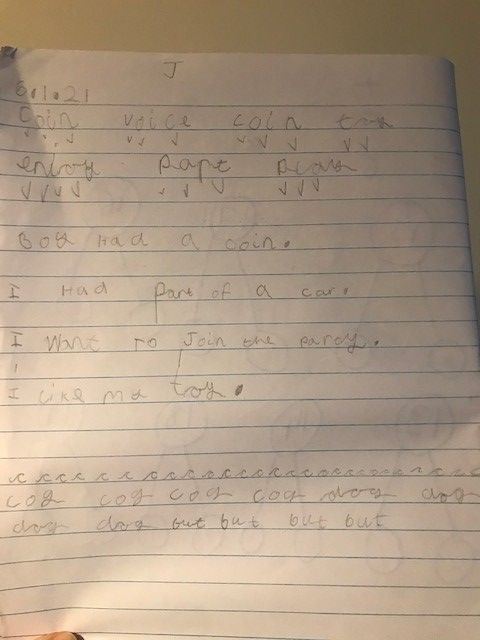 J
6.1.21
Coin voice coin toy
enjoy part
Boy had a coin.
I Had part of a car.
I want to Join the party.
I like my troy.
c c c c c c c c c c c c c c c c c c c c c
cog cog cog cog dog dog
dog dog but but but but